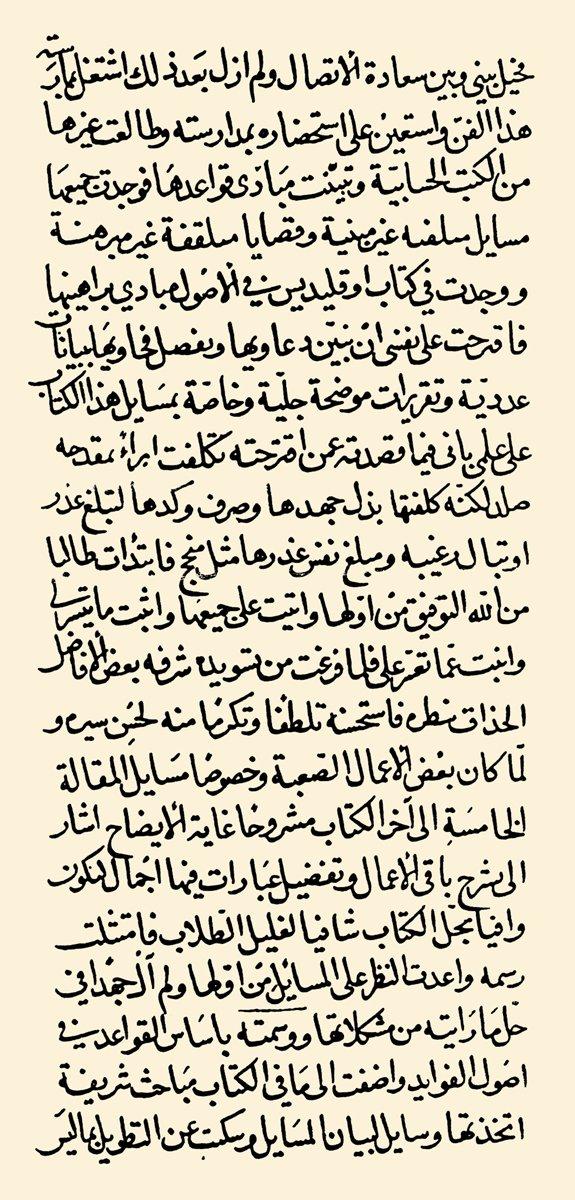 فحيل بيني وبين سعادة الاتصال ولم ازل بعد ذلك اشتغل بمارسته
هذا الفن واستعين على استحضاره بمدارسته وطالعت غيرها
من الكتب الحسابية وتبينت مبادى قواعدها فوجدت جميعها
مسايل غير مبنية وقضايا ملفقة غير مبرهنة
ووجدت في كتاب اوقليديس في الاصول مبادي براهينها
فاقترحت على نفسى ان نبين دعاويها ونفصل فحاويها ببيانات
عددية وتقريرات موضحة جلية وخاصة بمسايل هذا الكتاب
على علمى بانى فيما قصدته عمن اقترحته تكلفت ابراء بمقدحه
صلد لكنه كلفتها بذل جهدها وصرف وكدها لتبلغ عذر
او تنال رغيبه ومبلغ نفس عذرها مثل منجح فابتدات طالبا
من الله التوفيق من اولها واتيت على جميعها واثبت ما تيسر لى
وانبت عما تعسر على فلما فرغت من تسويده شرفه بعض الافاضل
الحذاق بنظره فاستحسنه تلطفا وتكرما منه لحسن سيره و
لما كان بعض الاعمال الصعبة وخصوصا مسايل المقالة
الخامسة الى آخر الكتاب مشروحا غاية الايضاح اشار
الى شرح باقى الاعمال وتفصيل عبارات فيها اجمال ليكون
وافيا بحل الكتاب شافيا لغليل الطلاب فامتثلت
رسمه واعدت النظر على المسايل من اولها ولم آل جهدا في
حل ما رايته من مشكلاتها ووسمته باساس القواعد في
اصول الفوايد واضفت الى ما في الكتاب مباحث شريفة
اتخذتها وسايل لبيان المسايل وسكت عن التطويل بما ليس